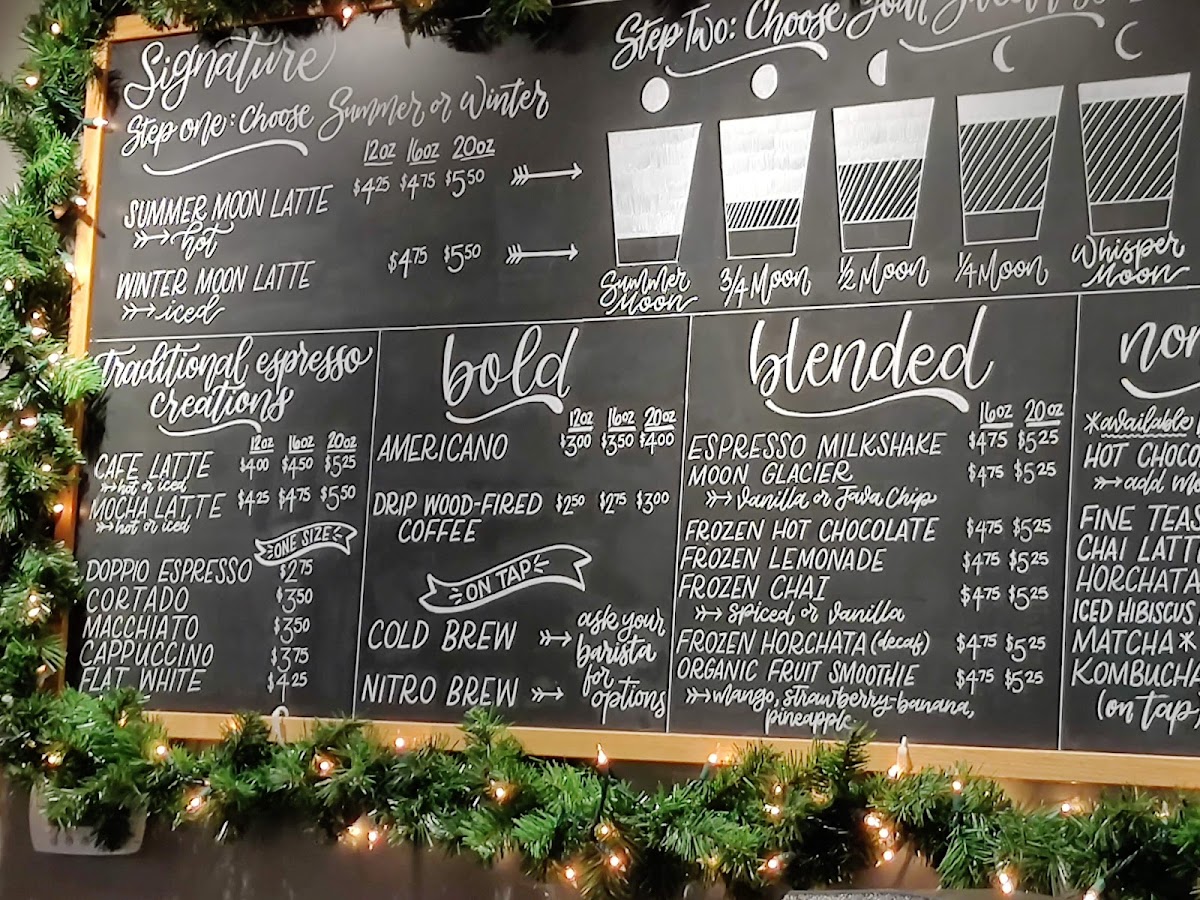 Signature
Step one: Choose Summer or Winter
12oz 16oz 20oz
SUMMER MOON LATTE $4.25 $4.75 $5.50
hot
WINTER MOON LATTE $4.75 $5.50
iced
Step Two: Choose Your
Summer Moon
3/4 Moon
1/2 Moon
1/4 Moon
Whisper Moon
traditional espresso
creations
12oz 16oz 20oz
CAFE LATTE $4.00 $4.50 $5.25
hot or iced
MOCHA LATTE $4.25 $4.75 $5.50
hot or iced
ONE SIZE
DOPPIO ESPRESSO $2.75
CORTADO $3.50
MACCHIATO $3.50
CAPPUCCINO $3.75
FLAT WHITE $4.25
bold
12oz 16oz 20oz
AMERICANO $3.00 $3.50 $4.00
DRIP WOOD-FIRED $2.50 $2.75 $3.00
COFFEE
ON TAP
COLD BREW
NITRO BREW
ask your
barista
for
options
blended
16oz 20oz
ESPRESSO MILKSHAKE $4.75 $5.25
MOON GLACIER $4.75 $5.25
Vanilla or Java Chip
FROZEN HOT CHOCOLATE $4.75 $5.25
FROZEN LEMONADE $4.75 $5.25
FROZEN CHAI $4.75 $5.25
Spiced or Vanilla
FROZEN HORCHATA (decaf) $4.75 $5.25
ORGANIC FRUIT SMOOTHIE $4.75 $5.25
Mango, strawberry-banana,
pineapple
non
*available
HOT CHOCO
add
FINE TEAS
CHAI LATT
HORCHATA
ICED HIBISCUS
MATCHA*
KOMBUCHA
(on tap